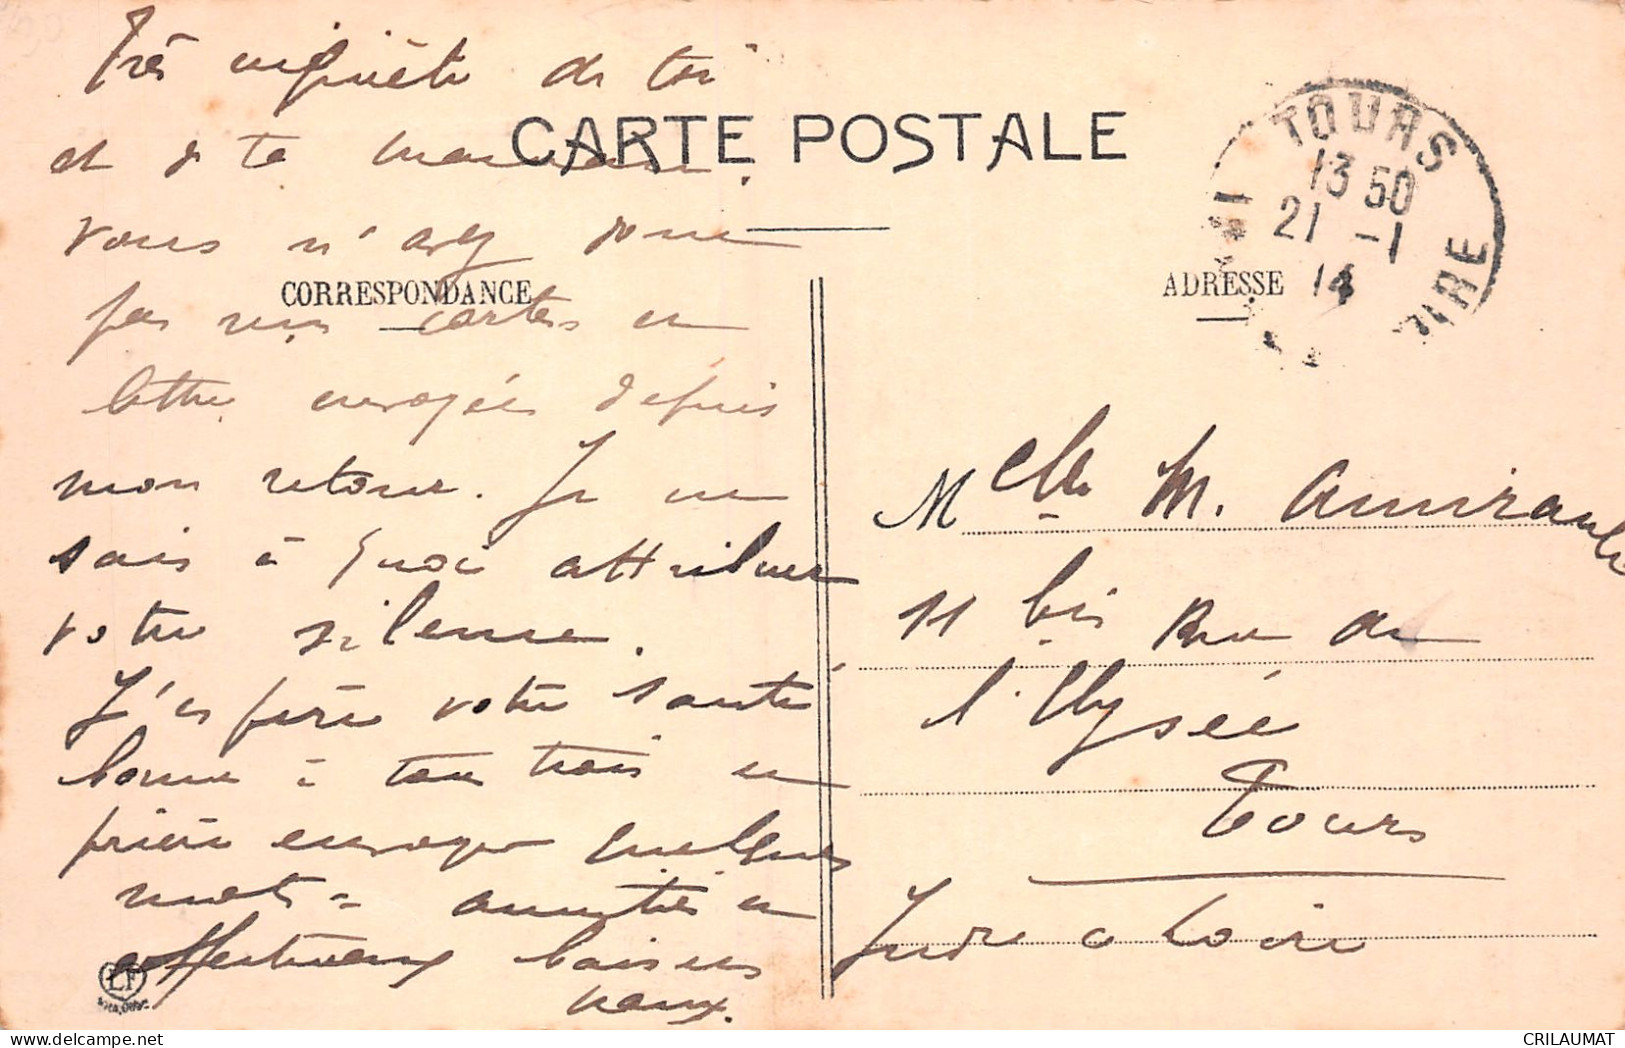 Très inquiète de toi
et de ta
CARTE POSTALE
vous n'avez donc
CORRESPONDANCE
pas reçu cartes en
lettre envoyées depuis
mon retour. Je ne
sais à quoi attribuer
votre silence.
J'espère votre santé
bonne à tous trois en
prière envoyer quelques
mots amitiés en
affectueux baisers
TOURS
13 50
21 -1
14
LOIRE
ADRESSE
Melle M. Amirault
11 bis Rue de
l'Elysée
Tours
Indre & Loire
LF
CRILAUMAT